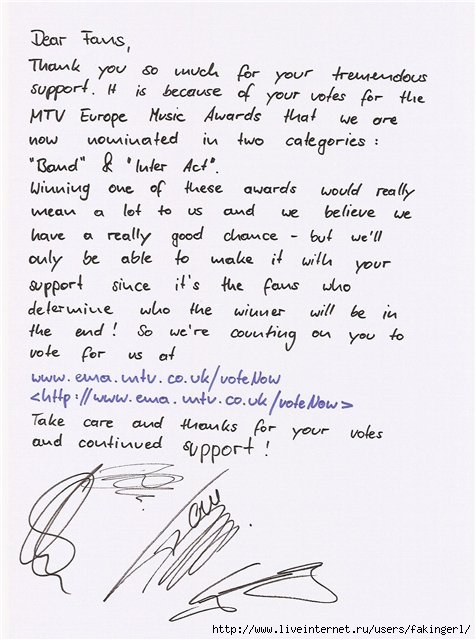 Dear Fans,
Thank you so much for your tremendous
support. It is because of your votes for the
MTV Europe Music Awards that we are
now nominated in two categories:
"Band" & "Inter Act".
Winning one of these awards would really
mean a lot to us and we believe we
have a really good chance - but we'll
only be able to make it with your
support since it's the fans who
determine who the winner will be in
the end! So we're counting on you to
vote for us at
www.ema.mtv.co.uk/voteNow
<http://www.ema.mtv.co.uk/voteNow>
Take care and thanks for your votes
and continued support!
http://www.liveinternet.ru/users/fakinger1/